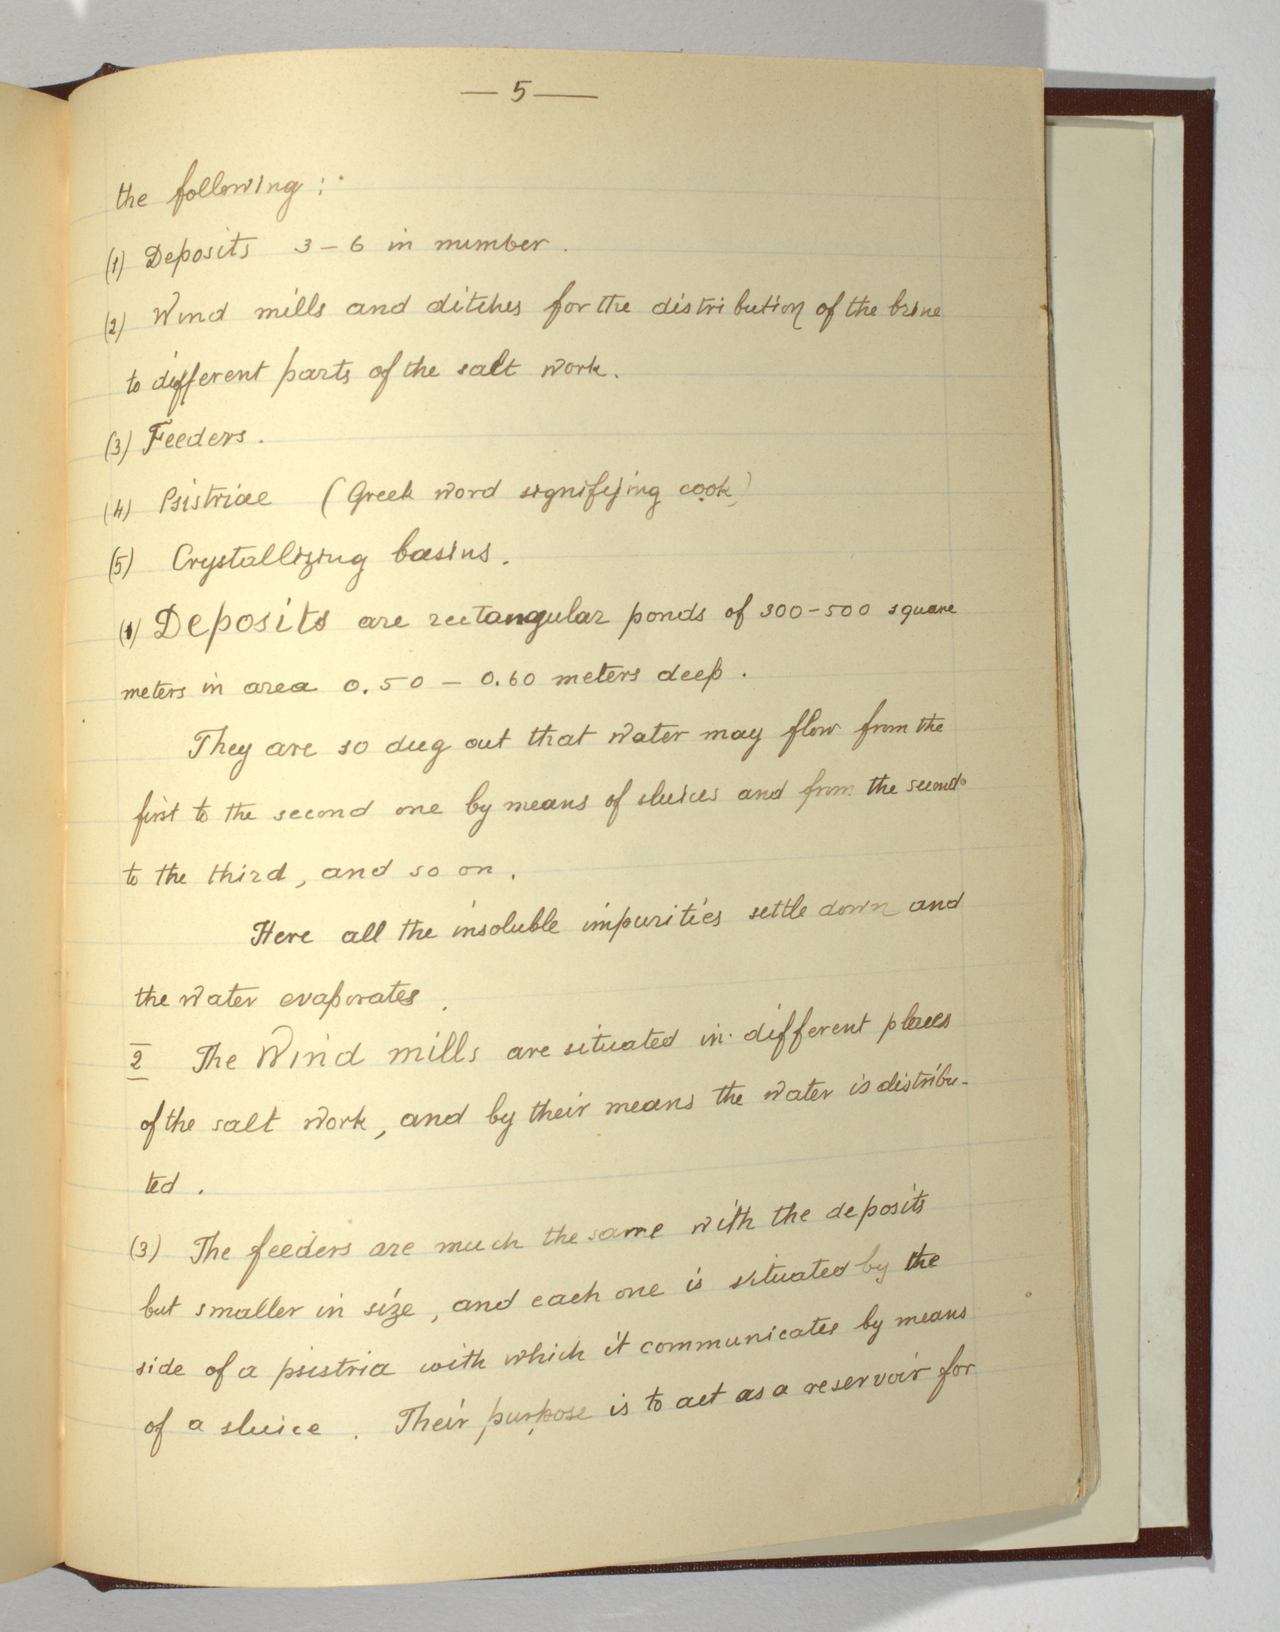 — 5 —
the following :
(1) Deposits 3 – 6 in number .
(2) Wind mills and ditches for the distribution of the brine
to different parts of the salt work .
(3) Feeders .
(4) Psistriae ( Greek word signifying cook )
(5) Crystallizing basins .
(1) Deposits are rectangular ponds of 300 – 500 square
meters in area 0.50 – 0.60 meters deep .
They are so dug out that water may flow from the
first to the second one by means of sluices and from the second
to the third , and so on .
Here all the insoluble impurities settle down and
the water evaporates .
2 The Wind mills are situated in different places
of the salt work , and by their means the water is distribu-
ted .
(3) The feeders are much the same with the deposits
but smaller in size , and each one is situated by the
side of a psistria with which it communicates by means
of a sluice . Their purpose is to act as a reservoir for